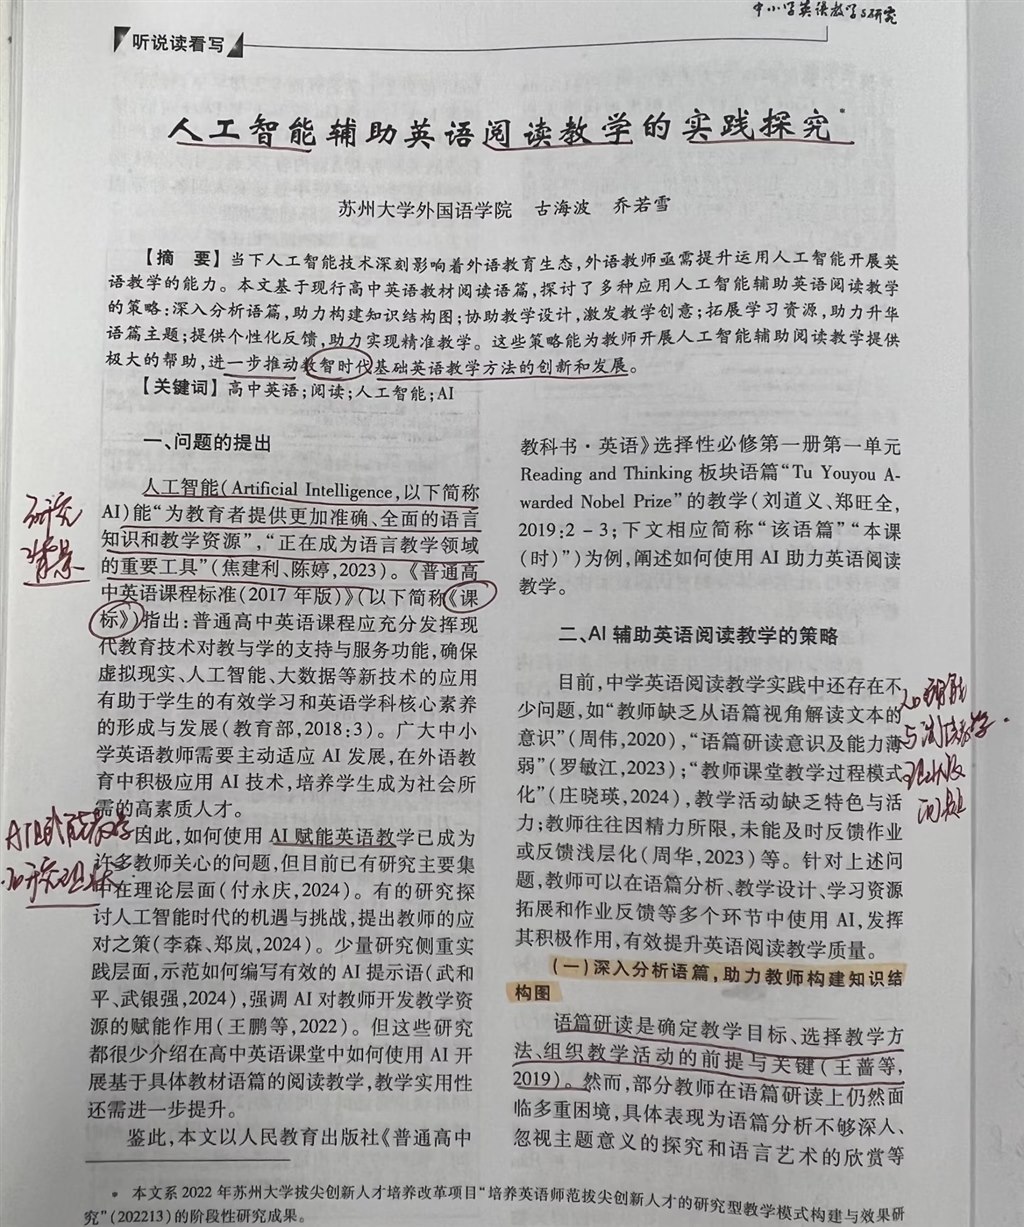 中小学英语教学与研究
听说读看写
人工智能辅助英语阅读教学的实践探究*
苏州大学外国语学院 古海波 乔若雪
【摘 要】当下人工智能技术深刻影响着外语教育生态,外语教师亟需提升运用人工智能开展英
语教学的能力。本文基于现行高中英语教材阅读语篇,探讨了多种应用人工智能辅助英语阅读教学
的策略:深入分析语篇,助力构建知识结构图;协助教学设计,激发教学创意;拓展学习资源,助力升华
语篇主题;提供个性化反馈,助力实现精准教学。这些策略能为教师开展人工智能辅助阅读教学提供
极大的帮助,进一步推动数智时代基础英语教学方法的创新和发展。
【关键词】高中英语;阅读;人工智能;AI
一、问题的提出
人工智能(Artificial Intelligence,以下简称
AI)能“为教育者提供更加准确、全面的语言
知识和教学资源”,“正在成为语言教学领域
的重要工具”(焦建利、陈婷,2023)。《普通高
中英语课程标准(2017年版)》(以下简称《课
标》)指出:普通高中英语课程应充分发挥现
代教育技术对教与学的支持与服务功能,确保
虚拟现实、人工智能、大数据等新技术的应用
有助于学生的有效学习和英语学科核心素养
的形成与发展(教育部,2018:3)。广大中小
学英语教师需要主动适应 AI 发展,在外语教
育中积极应用 AI 技术,培养学生成为社会所
需的高素质人才。
因此,如何使用 AI 赋能英语教学已成为
许多教师关心的问题,但目前已有研究主要集
中在理论层面(付永庆,2024)。有的研究探
讨人工智能时代的机遇与挑战,提出教师的应
对之策(李森、郑岚,2024)。少量研究侧重实
践层面,示范如何编写有效的 AI 提示语(武和
平、武银强,2024),强调 AI 对教师开发教学资
源的赋能作用(王鹏等,2022)。但这些研究
都很少介绍在高中英语课堂中如何使用 AI 开
展基于具体教材语篇的阅读教学,教学实用性
还需进一步提升。
鉴此,本文以人民教育出版社《普通高中
研究
背景
AI赋能教学
研究现状
教科书·英语》选择性必修第一册第一单元
Reading and Thinking 板块语篇“Tu Youyou A-
warded Nobel Prize”的教学(刘道义、郑旺全,
2019:2-3;下文相应简称“该语篇”“本课
(时)”)为例,阐述如何使用 AI 助力英语阅读
教学。
二、AI 辅助英语阅读教学的策略
目前,中学英语阅读教学实践中还存在不
少问题,如“教师缺乏从语篇视角解读文本的
意识”(周伟,2020),“语篇研读意识及能力薄
弱”(罗敏江,2023);“教师课堂教学过程模式
化”(庄晓瑛,2024),教学活动缺乏特色与活
力;教师往往因精力所限,未能及时反馈作业
或反馈浅层化(周华,2023)等。针对上述问
题,教师可以在语篇分析、教学设计、学习资源
拓展和作业反馈等多个环节中使用 AI,发挥
其积极作用,有效提升英语阅读教学质量。
(一)深入分析语篇,助力教师构建知识结
构图
语篇研读是确定教学目标、选择教学方
法、组织教学活动的前提与关键(王蔷等,
2019)。然而,部分教师在语篇研读上仍然面
临多重困境,具体表现为语篇分析不够深入、
忽视主题意义的探究和语言艺术的欣赏等
* 本文系2022年苏州大学拔尖创新人才培养改革项目“培养英语师范拔尖创新人才的研究型教学模式构建与效果研
究”(202213)的阶段性研究成果。